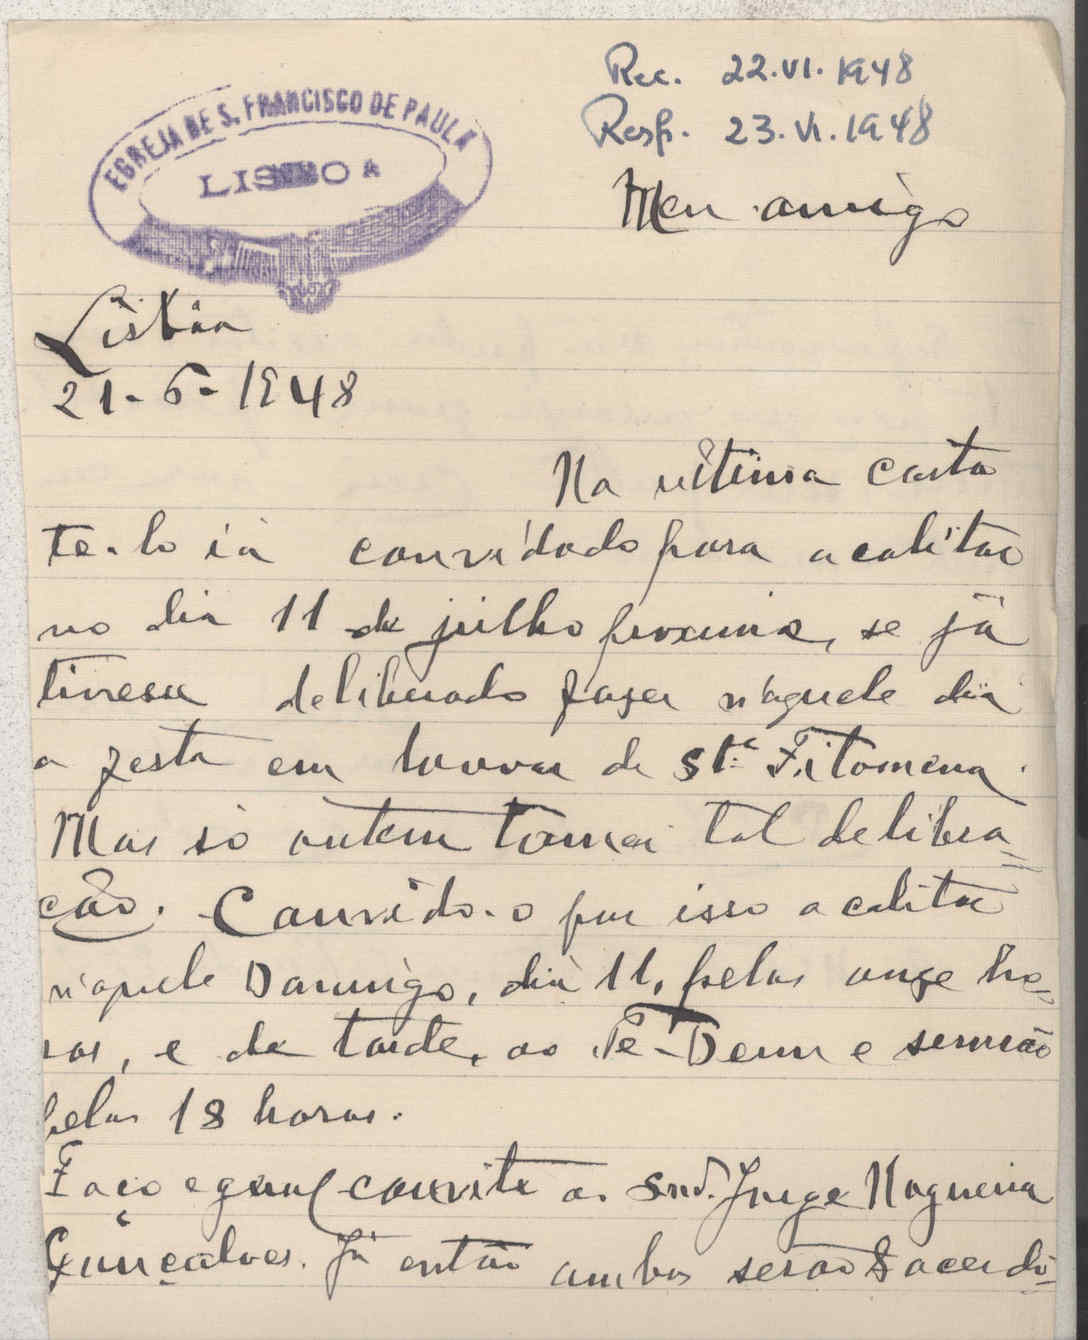 Rec. 22.VI.1948
Resp. 23.VI.1948
EGREJA DE S. FRANCISCO DE PAULA
LISBOA
Meu amigo
Lisbôa
21-6-1948
Na ultima carta
te-lo ia convidado para acolitar
no dia 11 de julho proximo, se já
tivesse deliberado fazer n'aquele dia
a festa em louvor de Stª Filomena.
Mas só ontem tomei tal delibera=
ção. Convido-o por isso a colitar
n'aquele Domingo, dia 11, pelas onze ho=
ras, e de tarde, ao Te-Deum e sermão
pelas 18 horas.
Faço egual convite ao Snr. Jorge Nogueira
Gonçalves. Já então ambos serão Sacerdo=